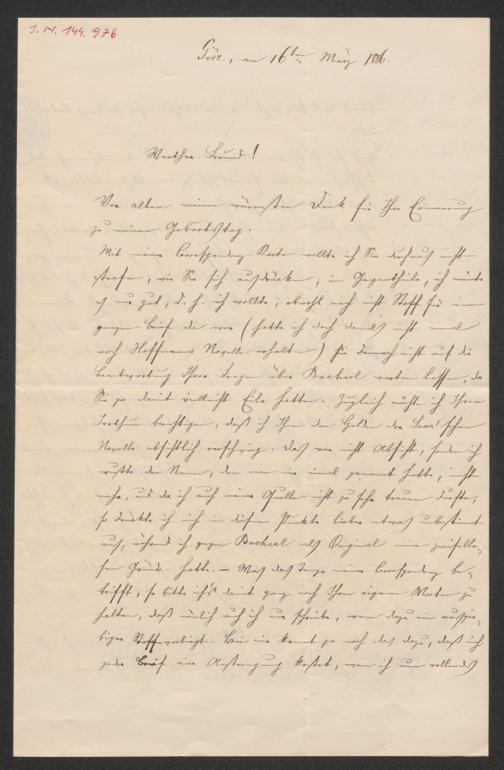 I. N. 144.976
Görz, am 16ten März 186.
Werther Freund!
Vor allem meinen wärmsten Dank für Ihre Erinnerung
zu meinem Geburtstag.
Mit meiner Correspondenz Karte wollte ich Sie durchaus nicht
strafen, wie Sie sich ausdrücken, im Gegentheile, ich meinte
es nur gut, d. h. ich wollte, obwohl noch nicht Stoff für einen
ganzen Brief da war (hatte ich doch damals nicht einmal
noch Hoffmanns Novelle erhalten) Sie dennoch nicht auf die
Beantwortung Ihrer Fragen über Bacherl warten lassen, da
Sie ja damit vielleicht Eile hatten. Zugleich muß ich Ihren
Irrthum berichtigen, daß ich Ihnen den Helden der Saar'schen
Novelle absichtlich verschwieg. Das war nicht Absicht, sondern ich
wußte den Namen, den man mir einmal genannt hatte, nicht
mehr, und da ich auch meiner Quelle nicht zu sehr trauen durfte,
so drückte ich mich in diesem Punkte lieber etwas unbestimmt
aus, während ich gegen Bacherl als Original meine zweifello-
sen Gründe hatte. – Was das Tempo unserer Correspondenz be-
trifft, so bitte ich's damit ganz nach Ihren eigenen Worten zu
halten, daß nämlich auch ich nur schreibe, wenn dazu ein ausgie-
biger Stoff vorliegt. Bei mir kommt ja noch das dazu, daß mich
jeder Brief eine Anstrengung kostet, wenn ich nun vollends